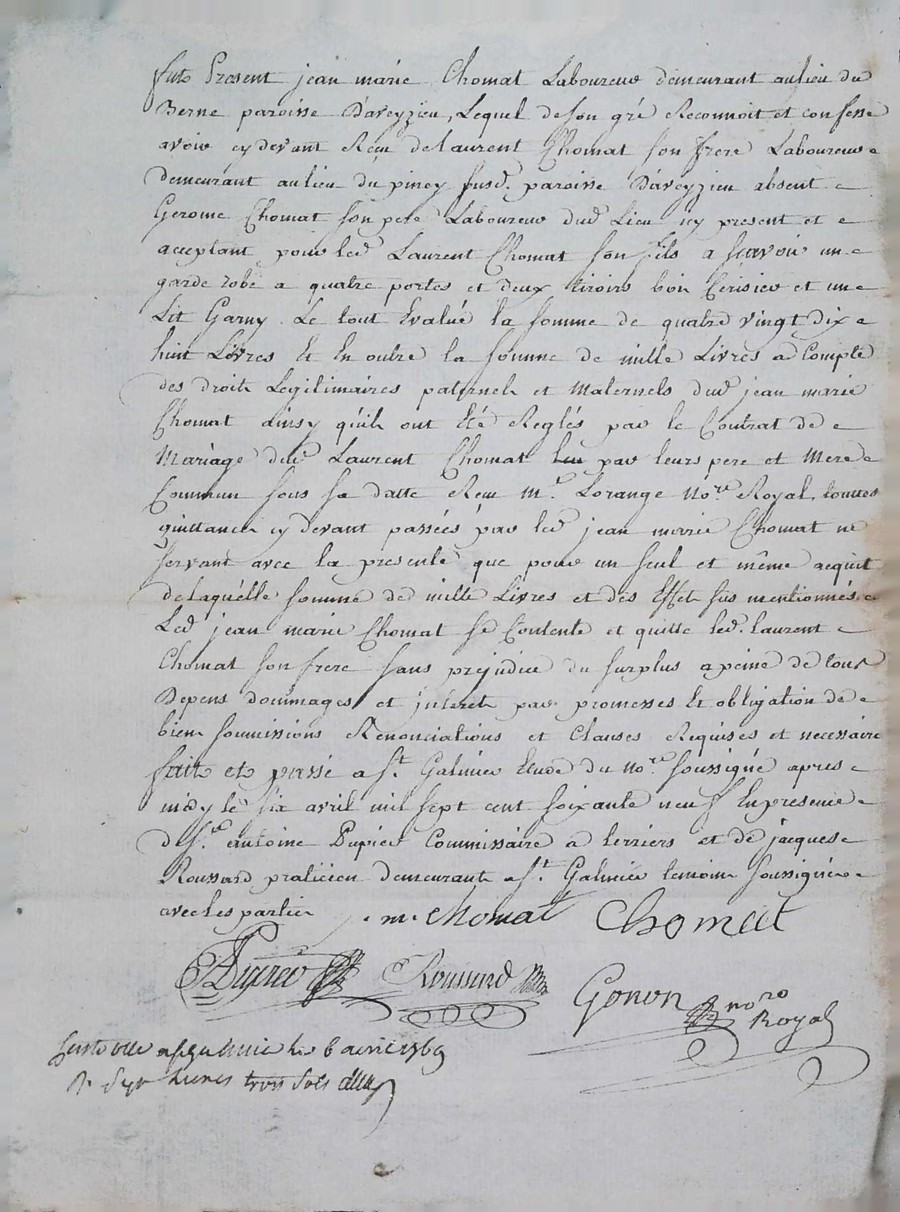 fute Present jean marie Chomat Laboureur demeurant au lieu du
Berne paroisse D'aveyzieu, Lequel de son gré Reconnoit et confesse
avoir cy devant Reçu de laurent Chomat son frere Laboureur
demeurant au lieu du piney susd. paroisse D'aveyzieu absent
Gerome Chomat son pere Laboureur dud Lieu icy present et
acceptant pour led Laurent Chomat son fils a sçavoir une
garde robe a quatre portes et deux tiroirs bois Cerisier et un
Lit Garny. Le tout Evalué la somme de quatre vingt dix
huit Livres Et En outre la somme de mille Livres a Compte
des droits Legitimaires paternels et Maternels dud jean marie
Chomat ainsy qu'ils ont Eté Reglés par le Contrat de
Mariage dud Laurent Chomat par leurs pere et Mere
Commun sous sa datte Reçu Me. Lorange No.re Royal, touttes
quittances cy devant passées par led jean marie Chomat ne
servant avec la presente que pour un seul et même acquit
de laquelle somme de mille Livres et des Effets sus mentionnés
Led jean marie Chomat se Contente et quitte led. laurent
Chomat son frere sans prejudice du surplus a peine de tous
Depens dommages et interets par promesses Et obligation de
biens soumissions Renonciations et Clauses Requises et necessaire
fait et passé a St. Galmier Etude du no.re soussigné apres
midy le six avril mil sept cent soixante neuf En presence
de Sr. antoine Dupier Commissaire a terriers et de jacques
Roussard praticien demeurants a St. Galmier temoins soussignés
avec les parties j. m. chomat Chomat
Dupier Roussard Gonon no.re
Royal
a St galmier le 6 avril 1769
R. Sept livres trois sols